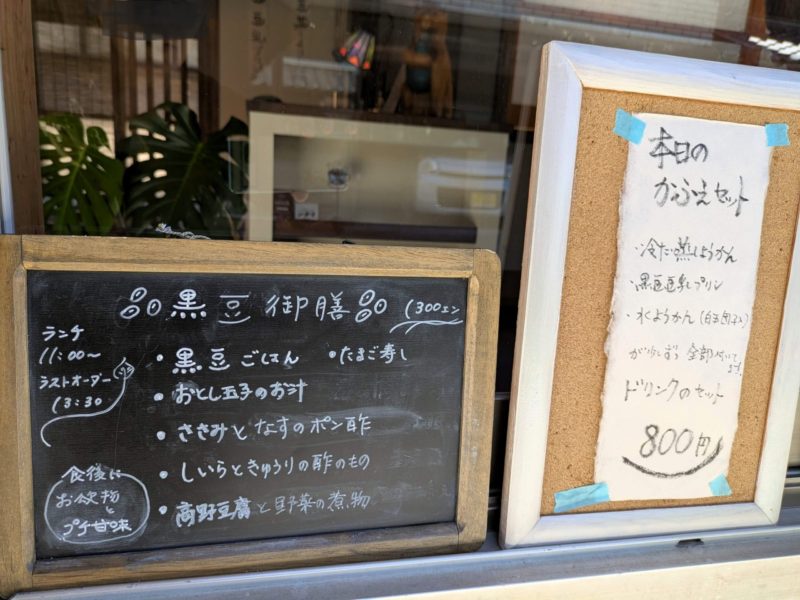 黒豆御膳 1300エン
ランチ
11:00〜
ラストオーダー
13:30
・黒豆ごはん ・たまご寿し
・おとし玉子のお汁
・ささみとなすのポン酢
・しいらときゅうりの酢のもの
・高野豆腐と野菜の煮物
食後に
お飲物と
プチ甘味
本日の
かふぇセット
・冷た〜い蒸しようかん
・黒豆豆乳プリン
・水ようかん(白玉団子入)
が少しずつ全部付いてます。
ドリンクのセット
800円